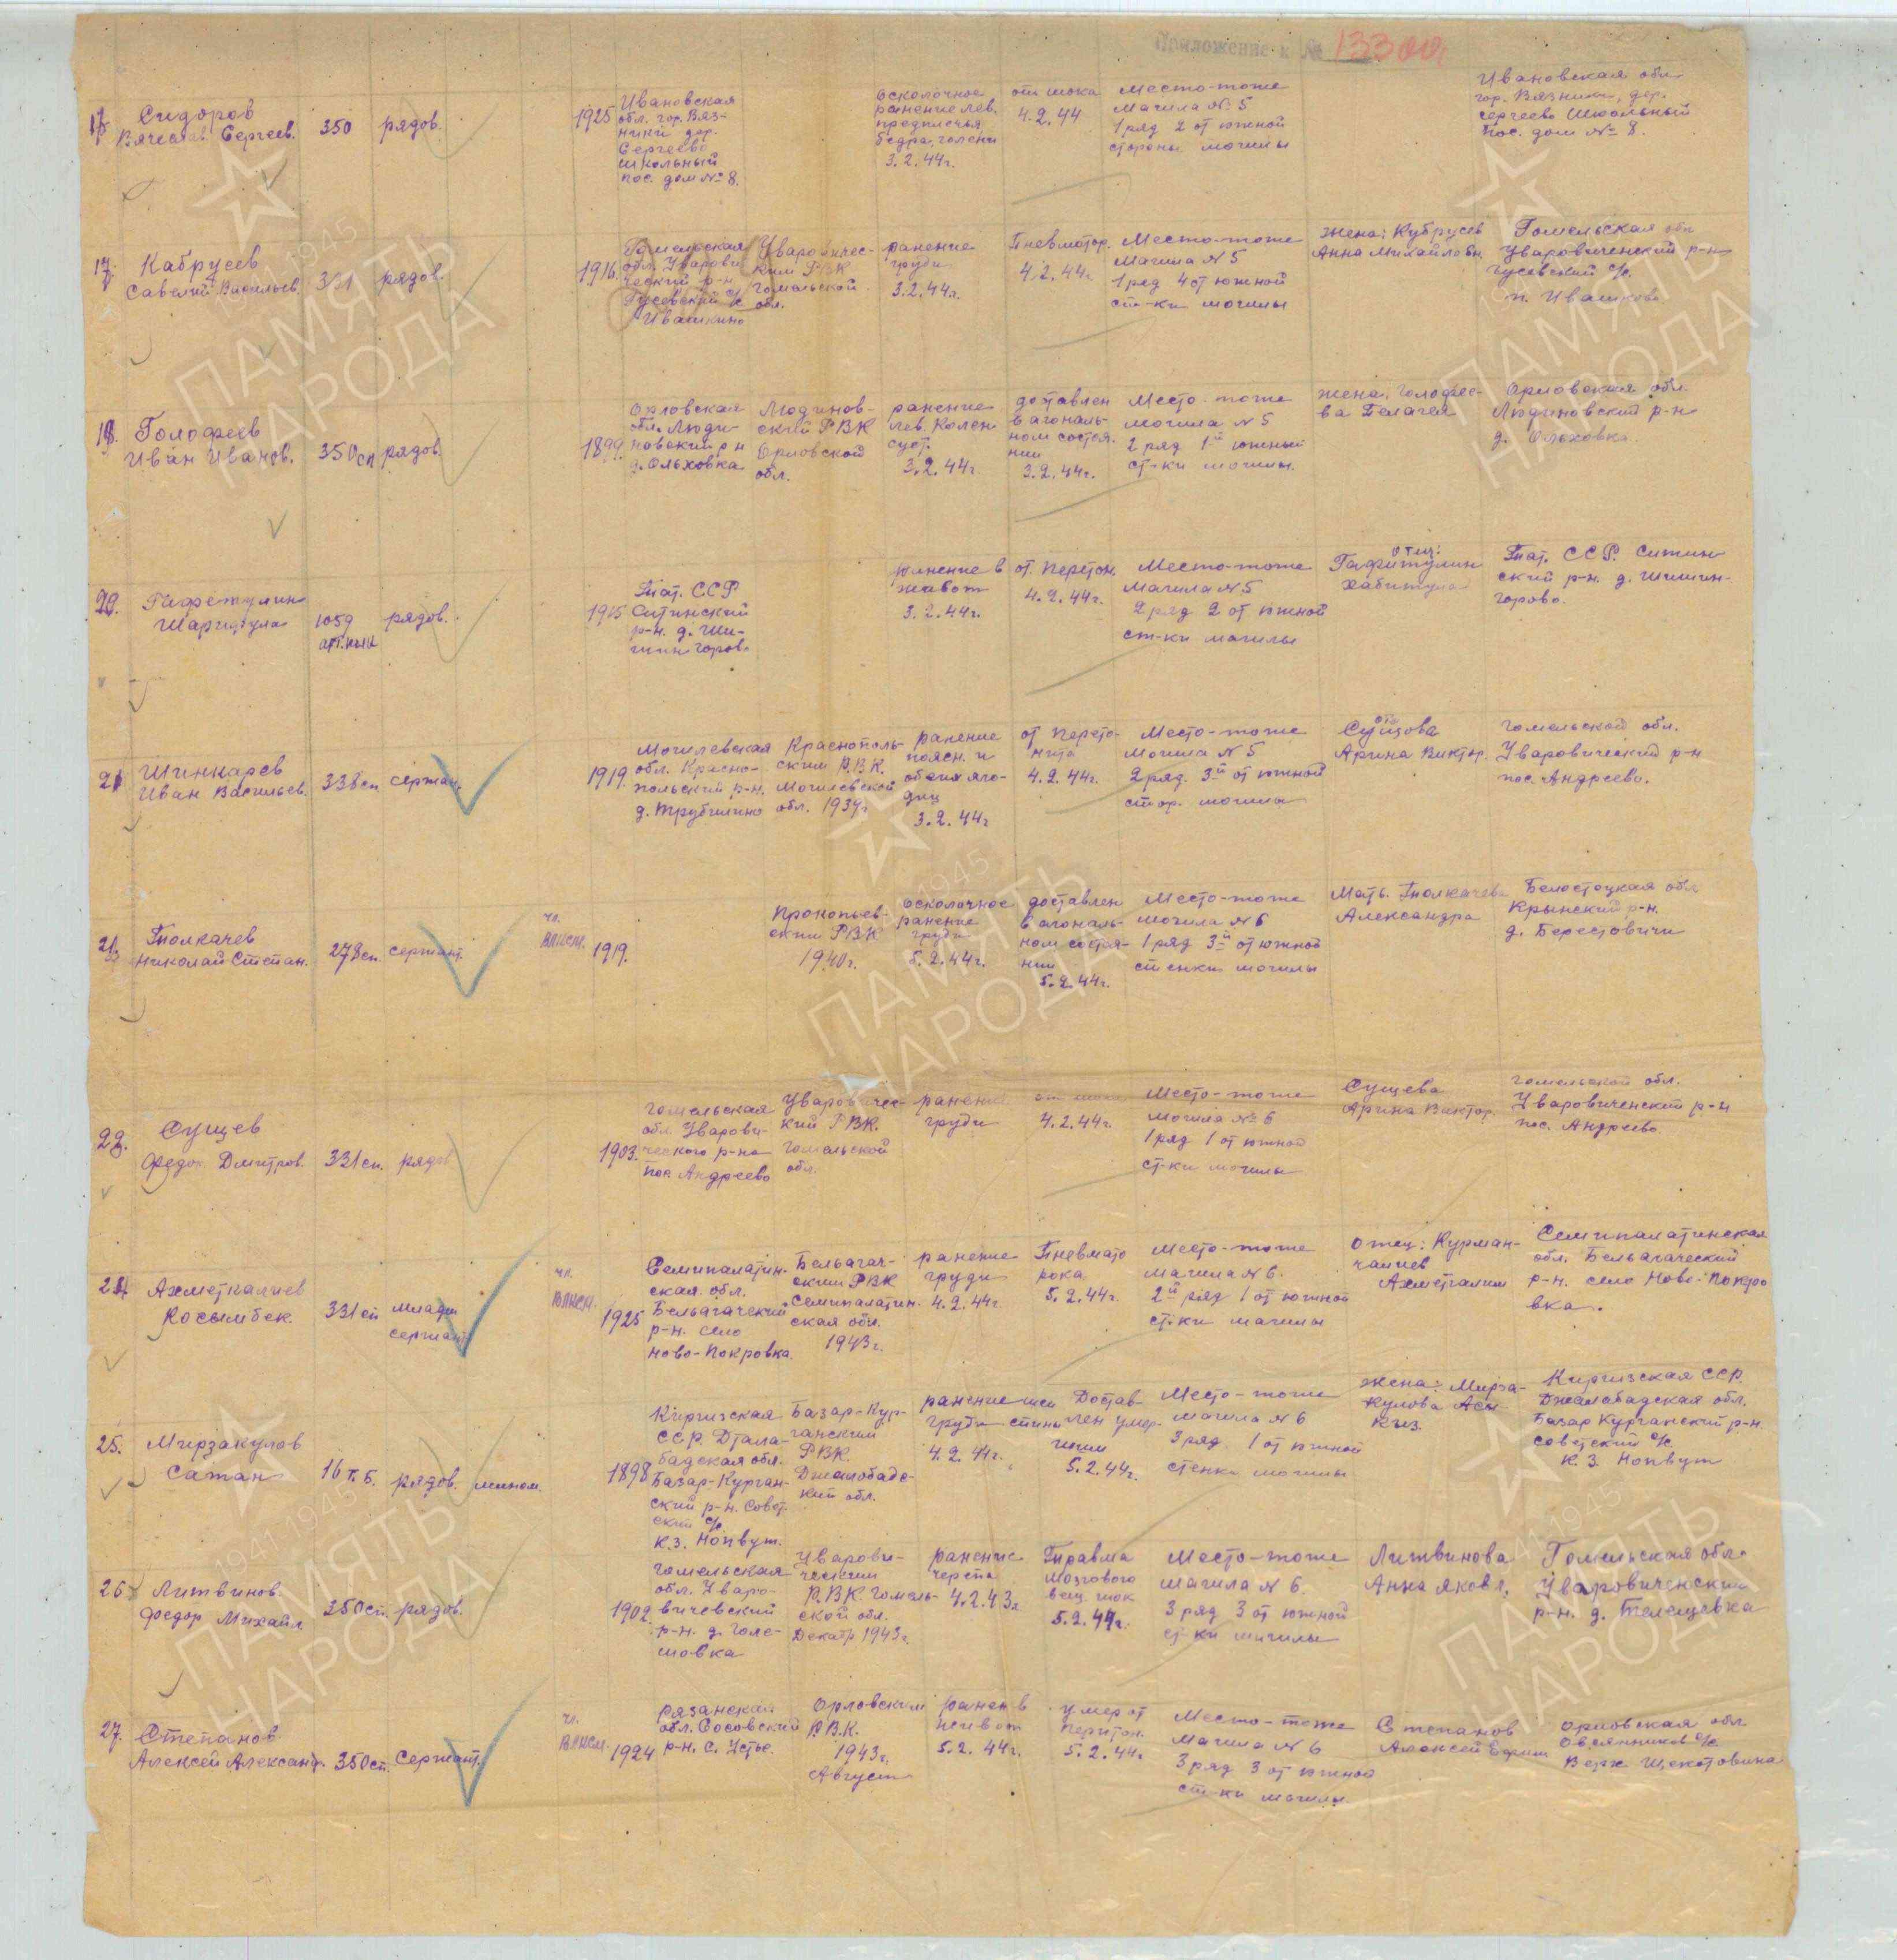 Приложение к № 13300
Сидоров
Сергеев.
350
рядов.
1925
Ивановская
обл. гор. Вяз-
ники дер.
Сергеево
школьный
пос. дом № 8.
осколочное
ранение лев.
предплечья
бедра, голени
3.2.44г.
от шока
4.2.44
Место-тоже
Магила № 5
1 ряд 2 от южной
стороны могилы
Ивановская обл.
гор. Вязники, дер.
Сергеево Школьный
пос. дом № 8.
Кабрусев
Савелий Васильев.
рядов.
1916.
Гомельская
обл. Уварови
ческий р-н
Гусевский с/с
Ивашкино
Уваровичес-
ким РВК
Гомельской
обл.
ранение
груди
3.2.44г.
Пневмотор.
4.2.44г.
Место-тоже
Магила N 5
1 ряд 4 от южной
ст-ки могилы
жена: Кубрусев
Анна Михайловн.
Гомельская обл
Уваровиченский р-н
Гусевский с/с.
п. Ивашково.
Голофеев
Иван Иванов.
350сп
рядов.
1899.
Орловская
обл. Люди-
новский р н
д. Ольховка
Людинов-
ский РВК
Орловской
обл.
ранение
лев. колен
суст.
3.2.44г.
доставлен
в агональ-
ном состоя.
нии
3.2.44г.
Место-тоже
могила N 5
2 ряд 1й южный
ст-ки могилы.
жена, Голофее-
ва Пелагея
Орловская обл.
Людиновский р-н
д. Ольховка.
Гафетулин
Шарифула
1059
арт.полк
рядов.
1915
Тат. ССР
Ситинский
р-н. д. Ши-
ранение в
живот
3.2.44г.
от. перетон.
4.2.44г.
Место-тоже
Магила N 5
2 ряд 2 от южной
ст-ки могилы
отец:
Гафитулин
Хабитула
Тат. ССР. Ситин-
ский р-н. д. Шишин-
горово.
21
Шинкарев
Иван Васильев.
338сп
сержан.
1919.
Могилевская
обл. Красно-
польский р-н.
д. Трубилино
Краснополь-
ским Р.В.К.
Могилевской
обл. 1939г
ранение
поясн. и
обеих яго-
диц
3.2.44г
от перето-
нита
4.2.44г.
Место-тоже
Могила N 5
2 ряд. 3й от южной
стор. могилы
Арина Виктор.
гомельской обл.
Уваровический р-н
пос. Андреево.
Толкачев
Николай Степан.
278сп.
сержант.
чл.
ВЛКСМ.
1919.
Прокопьев-
ским РВК
1940г.
осколочное
ранение
груди
5.2.44г.
доставлен
в агональ-
ном состоя-
нии
5.2.44г.
Место-тоже
могила N 6
1 ряд 3й от южной
стенки могилы
Мать. Толкачева
Александра
Белостоцкая обл
Крынский р-н.
д. Берестовичи
Сущев
Федор Дмитров.
331сп.
рядов
1903.
гомельская
обл. Уварови-
ческого р-на
пос. Андреево
Уваровичес-
кий РВК.
гомельской
обл.
ранение
груди
от шока
4.2.44г.
Место-тоже
могила № 6
1 ряд 1 от южной
ст-ки могилы
Сущева
Арина Виктор.
гомельской обл.
Уваровиченский р-н
пос. Андреево
24
Ахметкалиев
Косымбек.
331сп
младш
сержант
чл.
ВЛКСМ.
1925
Семипалатин-
ская обл.
Бельагачский
р-н. село
Ново-Покровка.
Бельагач-
ским РВК
Семипалатин.
ская обл.
1943г.
ранение
груди
4.2.44г.
Пневмато
рока
5.2.44г.
Место-тоже
магила N 6.
2й ряд 1 от южной
ст-ки магилы
отец: Курман-
чалиев
Ахметгалим
Семипалатинская
обл. Бельагаческий
р-н. село Ново-Покро
вка.
25.
Мирзакулов
Саман
16 т.б.
рядов.
мином.
1898
Киргизская
ССР. Джала-
бадская обл.
Базар-Курган-
ский р-н. Совет-
ский с/с
К.З. Нопвут.
Базар-Кур-
ганский
РВК.
Джалобадс-
кий обл.
ранение шеи
груди спины
4.2.44г.
Достав-
лен умер-
шим
5.2.44г.
Место-тоже
магила N 6
3 ряд 1 от южной
стенки могилы
жена: Мирза-
кулова Асы
Кыз.
Киргизская ССР.
Джалобадская обл.
Базар Курганский р-н.
Советский с/с
К.З. Нопвут
26
Литвинов
Федор Михайл.
350сп.
рядов.
1902.
гомельская
обл. Уваро-
вичевский
р-н. д. Теле-
шовка
Уварови-
ческим
Р.В.К. Гомель-
ской обл.
Декабр 1943г.
ранение
черепа
4.2.43г
Травма
мозгового
вещ. шок
5.2.44г.
Место-тоже
магила N 6.
3 ряд 3 от южной
ст-ки могилы
Литвинова
Анна Яковл.
Гомельская обл.
Уваровиченский
р-н. д. Телешевка
27.
Степанов
Алексей Александр.
350сп.
Сержант.
чл.
ВЛКСМ.
1924
Рязанская
обл. Сосовский
р-н. с. Устье.
Орловским
Р.В.К.
1943г.
Август
ранен в
живот
5.2.44г.
умер от
перитон.
5.2.44г
Место-тоже
Магила N 6
3 ряд 3 от южной
ст-ки могилы
Степанов
Алексей Ефим.
Орловская обл
Овсянников с/с
Верх. Щекотовина
ПАМЯТЬ
НАРОДА
1941-1945